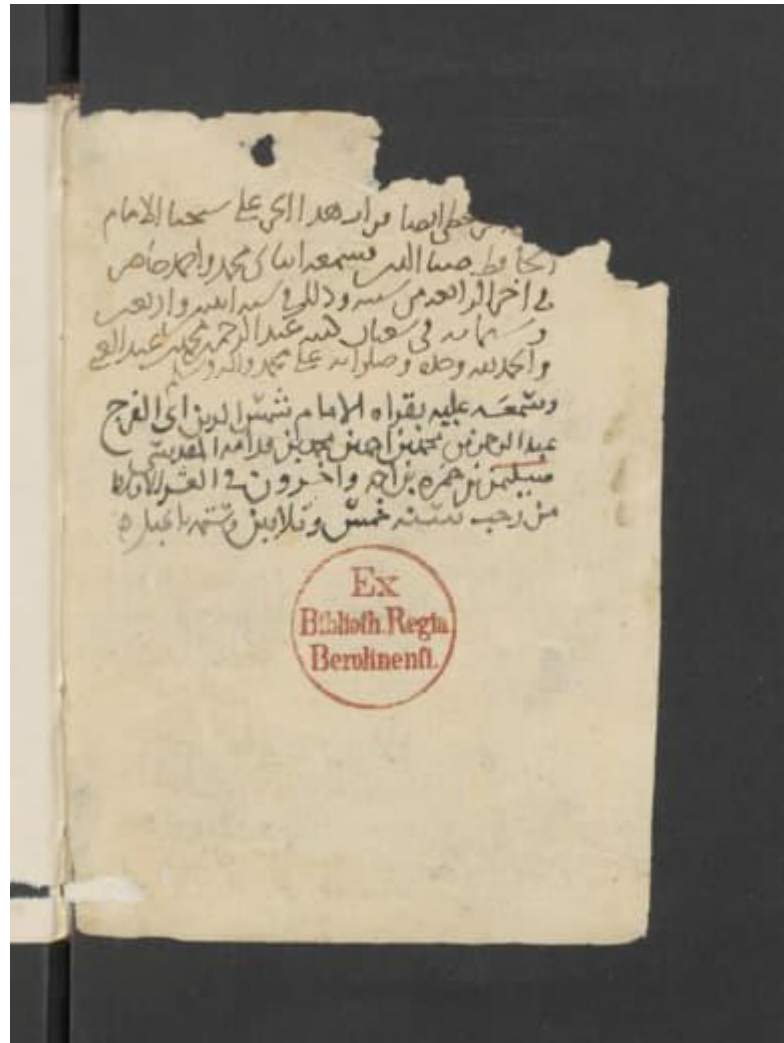 هذا الجزء على شيخنا الامام
الحافظ ضيا الدين فسمعه ابناى محمد واحمد حاضر
فى اخر الرابعة من سنه وذلك فى سنه اثنتين واربعين
وستمائه فى شعبان كتبه عبد الرحمن بن محمد بن عبد الغنى
والحمد لله وحده وصلواته على محمد واله وسلم
وسمعه عليه بقراه الامام شمس الدين ابى الفرج
عبد الرحمن بن محمد بن احمد بن محمد بن قدامه المقدسى
سليمن بن حمزه بن احمد واخرون فى العشر الاوسط
من رجب سنه خمس وثلاثين وستمائه
Ex
Biblioth. Regia
Berolinensi.